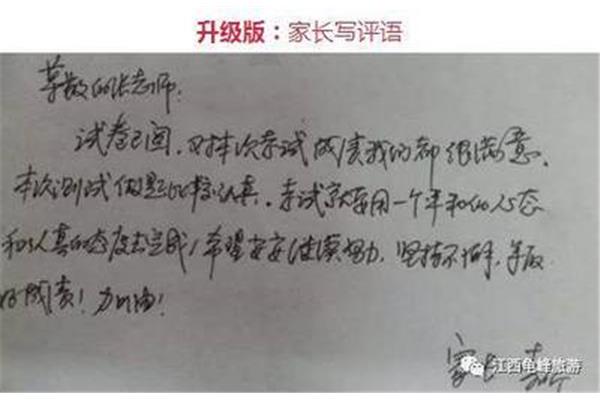 升级版：家长写评语
尊敬的张老师：
试卷已阅，对本次考试成绩我们都很满意，
本次测试做题比较认真，考试就要用一个平和的心态
和认真的态度去完成！希望安安继续努力，坚持不懈，争取
好成绩！加油！
家长
江西龟峰旅游